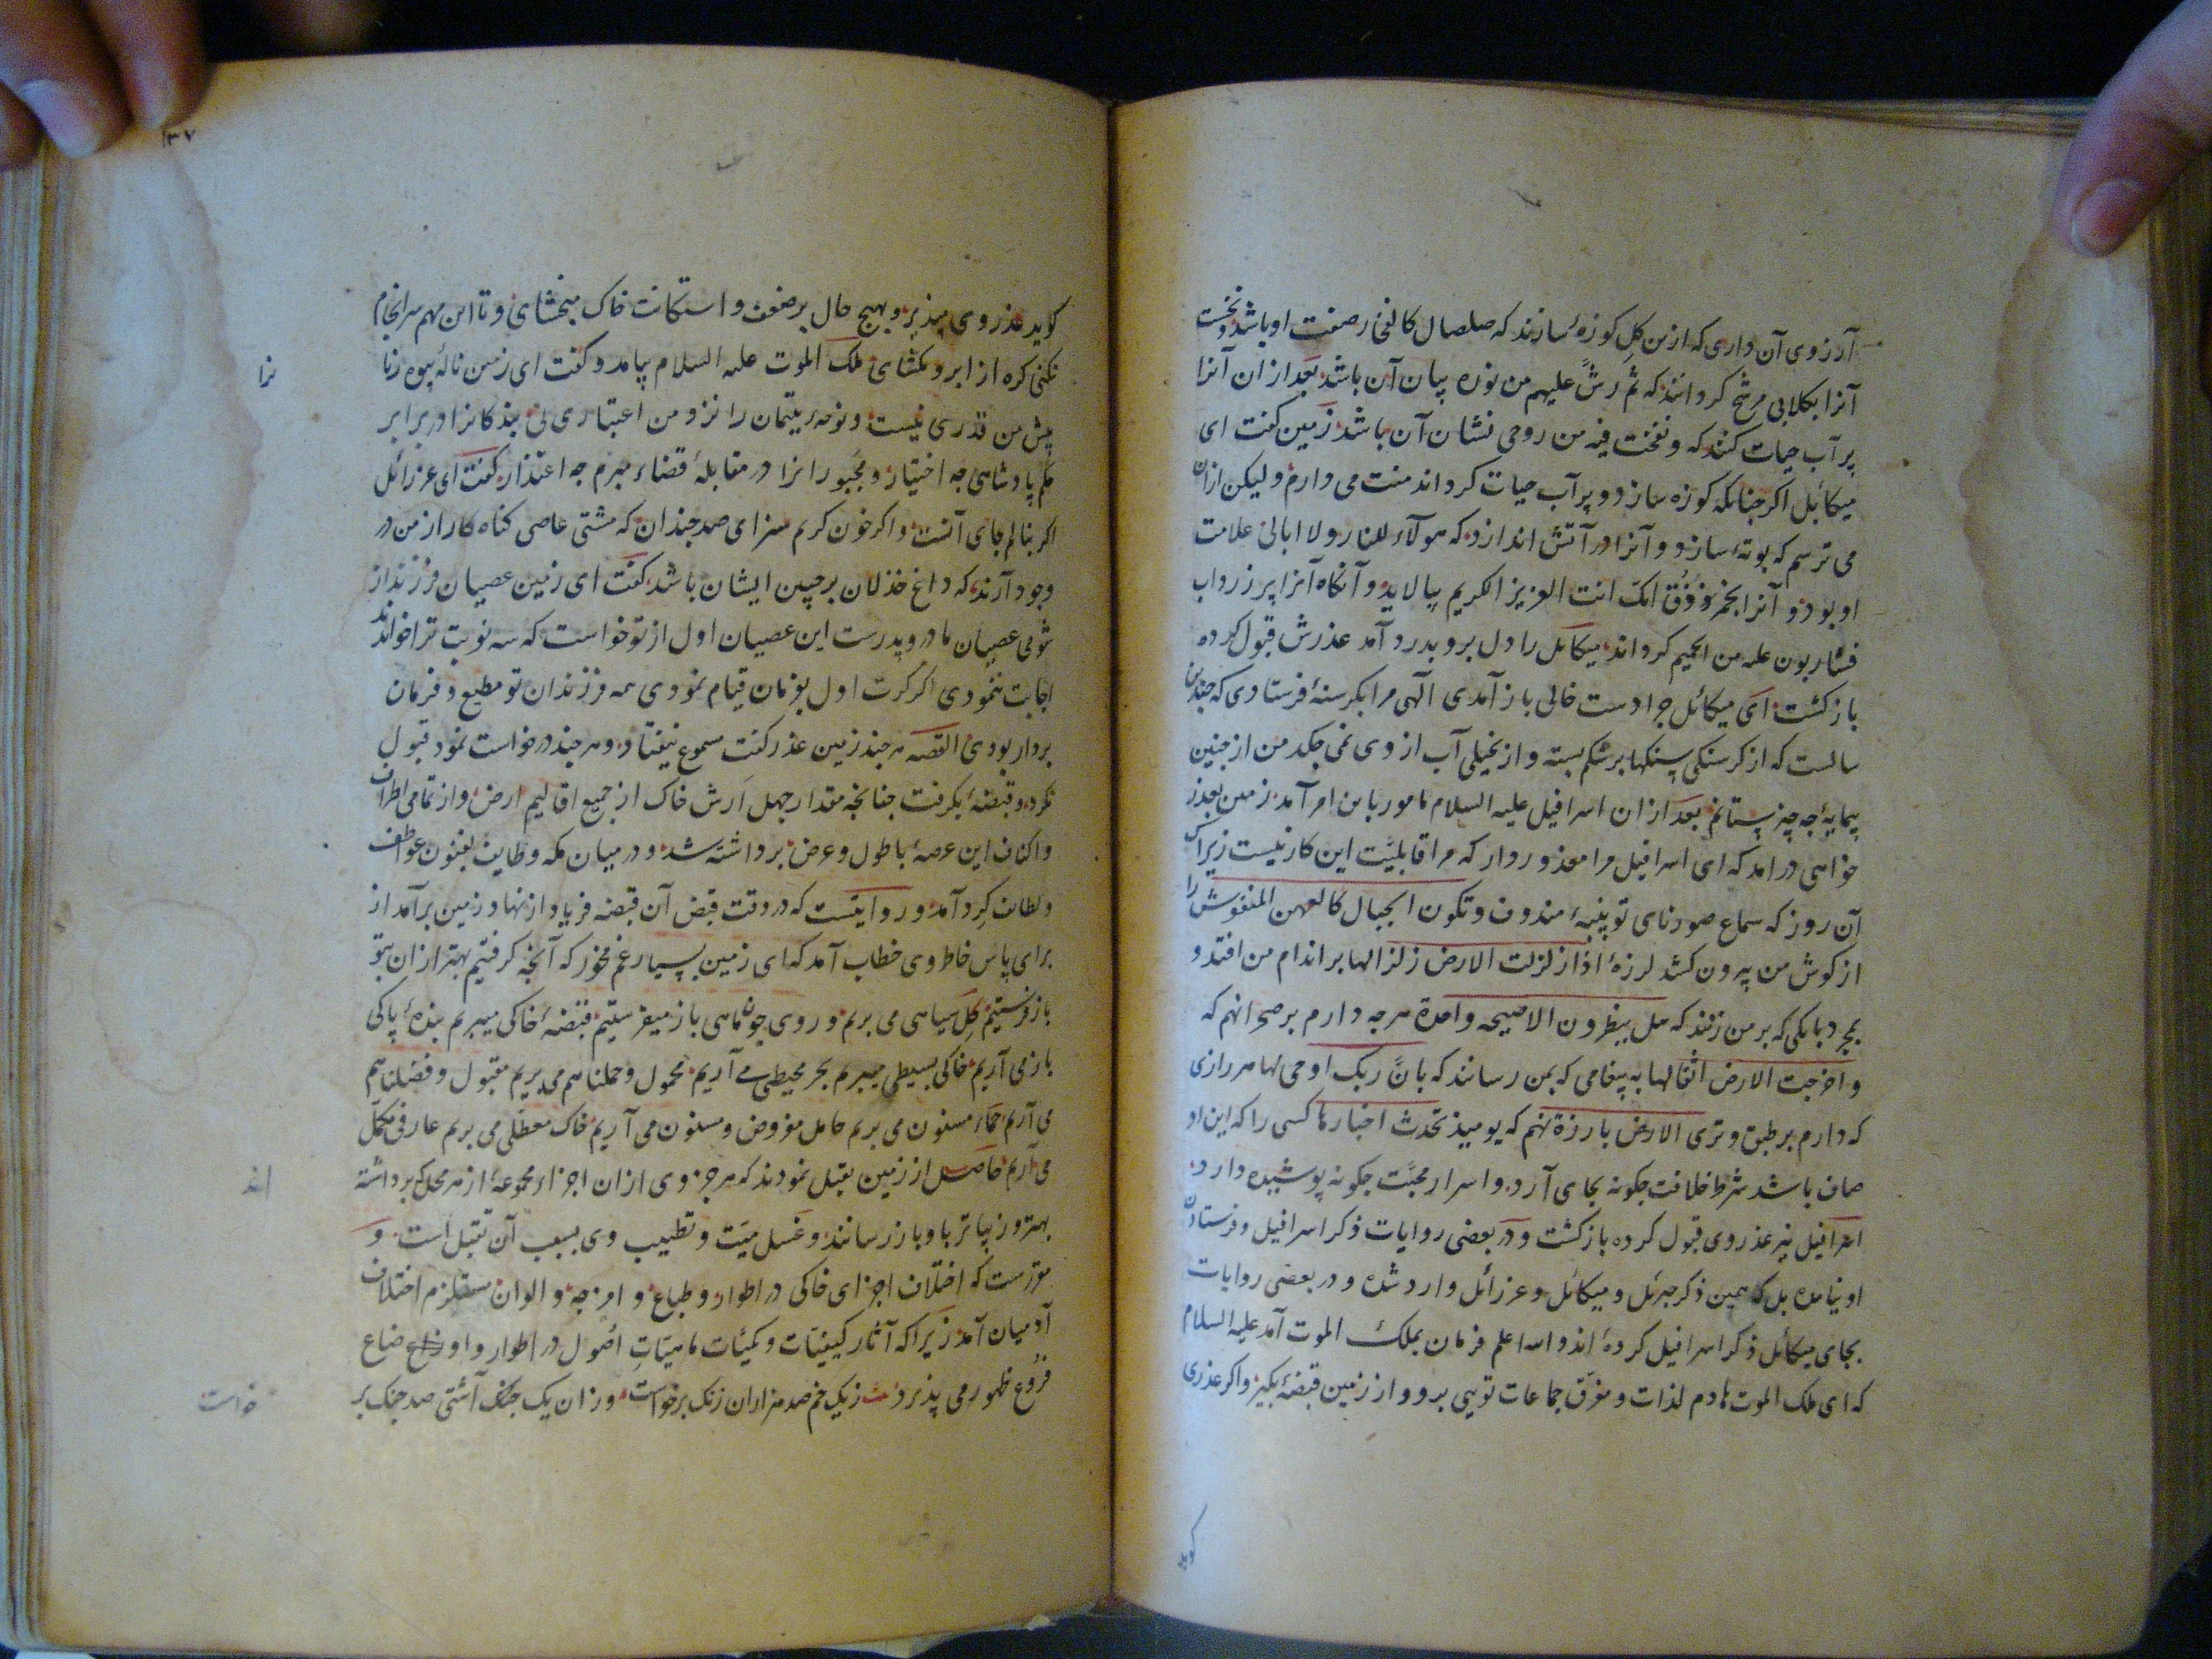 آرزوی آن داری که ازین گل کوزهٔ سازند که صلصال کالفخار صفت او باشد و نخست
آنرا بکلابی مرشح کردانند که ثم رشّ علیهم من نوره بیان آن باشد بعد از ان آنرا
پر آب حیات کنند که و نفخت فیه من روحی نشان آن باشد زمین کفت ای
میکائیل اکر چنانکه کوزه سازد و پر آب حیات کرداند منت می دارم ولیکن ازان
می ترسم که بوتهٔ سازد و آنرا در آتش اندازد که هولآء للنار ولا ابالی علامت
او بود و آنرا بخمر ذق انک انت العزیز الکریم بیالاید و آنکاه آنرا پر زرداب
فشاربون علیه من الحمیم کرداند میکائل را دل برو بدرد آمد عذرش قبول کرده
بازکشت ای میکائل چرا دست خالی باز آمدی الهی مرا بکرسنهٔ فرستادی که چندین
سالست که از کرسنکی سنکها بر شکم بسته و از بخیلی آب از وی نمی چکد من از چنین
بیمایهٔ چه چیز ستانم بعد ازان اسرافیل علیه السلام مامور باین امر آمد زمین بعذر
خواهی درامد که ای اسرافیل مرا معذور دار که مرا قابلیّت این کار نیست زیراک
آن روز که سماع صور نای تو پنبهٔ مندوف و تکون الجبال کالعهن المنفوش را
از کوش من بیرون کشد لرزهٔ اذا زلزلت الارض زلزالها بر اندام من افتد و
بمجرد بانکی که بر من زنند که هل ینظرون الا صیحه واحدة هرچه دارم بر صحرا نهم که
و اخرجت الارض اثقالها به پیغامی که بمن رسانند که بانّ ربک اوحی لها هر رازی
که دارم بر طبق و تری الارض بارزة نهم که یومیذ تحدث اخبارها کسی را که این او
صاف باشد شرط خلافت چکونه بجای آرد و اسرار محبّت چکونه پوشیده دارد
اسرافیل نیز عذر وی قبول کرده بازکشت و در بعضی روایات ذکر اسرافیل و فرستادن
او نیامده بل که همین ذکر جبرئل و میکائل و عزرائل وارد شده و در بعضی روایات
بجای میکائل ذکر اسرافیل کرده اند و الله اعلم فرمان بملک الموت آمد علیه السلام
که ای ملک الموت هادم لذات و مفرّق جماعات تویی برو و از زمین قبضهٔ بکیر و اکر عذری
کوید
۱۳۷
کوید عذر وی مپذیر و بهیچ حال بر ضعف و استکانت خاک مبخشای و تا این مهم سرانجام
نکنی کره از ابرو مکشای ملک الموت علیه السلام بیامد و کفت ای زمین نالهٔ بیوه زنا
نرا
پیش من قدری نیست و نوحه یتیمان را نزد من اعتباری نی بندکانرا در برابر
حکم پادشاهی چه اختیار و مجبورانرا در مقابلهٔ قضاء مبرم چه اعتذار کفت ای عزرائل
اکر بنالم جای آنست و اکر خون کریم سزای صد چندان که مشتی عاصی کناه کار از من در
وجود آرند که داغ خذلان بر جبین ایشان باشد کفت ای زمین عصیان فرزند از
شومی عصیان مادر و پدرست این عصیان اول از تو خواست که سه نوبت ترا خواندند
اجابت ننمودی اکر کرت اول بفرمان قیام نمودی همه فرزندان تو مطیع و فرمان
بردار بودی القصه هرچند زمین عذر کفت مسموع نیفتاد و هرچند درخواست نمود قبول
نکرد و قبضهٔ بکرفت چنانچه مقدار چهل اَرش خاک از جمیع اقالیم ارض و از تمامی اطراف
و اکناف این عرصهٔ باطول و عرض برداشته شد و در میان مکه و طایف بفنون عواطف
و لطائف کرد آمد و روایتست که در وقت قبض آن قبضه فریاد از نهاد زمین برآمد از
برای پاس خاطر وی خطاب آمد که ای زمین بسیار غم مخور که آنچه کرفتیم بهتر ازان بتو
باز فرستیم کل سیاهی می بریم و روی چون ماهی باز میفرستیم قبضهٔ خاکی میبریم بندهٔ پاکی
باز می آریم خاکی بسیطی میبریم بحر محیطی می آریم محمول و حملناهم می بریم مقبول و فضلناهم
می آریم حماء مسنون می بریم حامل مفروض و مسنون می آریم خاک معطّلی می بریم عارفی مکمّل
می آریم حاصل از زمین تقبل نمودند که هر جزوی ازان اجزاء مجموعهٔ از هر محل که برداشته
اند
بهتر و زیباتر باو باز رسانند و غسل میّت و تطییب وی بسبب آن تقبل است و
مقررست که اختلاف اجزای خاکی در اطوار و طباع و امزجه و الوان مستلزم اختلاف
آدمیان آمد زیرا که آثار کیفیّات و کمیّات ماهیّاتِ اصُول در اطوار و اوضاع
فروع ظهور می پذیرد زیک خم صد هزاران رنک برخواست وزان یک جنک آشتی صد جنک بر
خواست